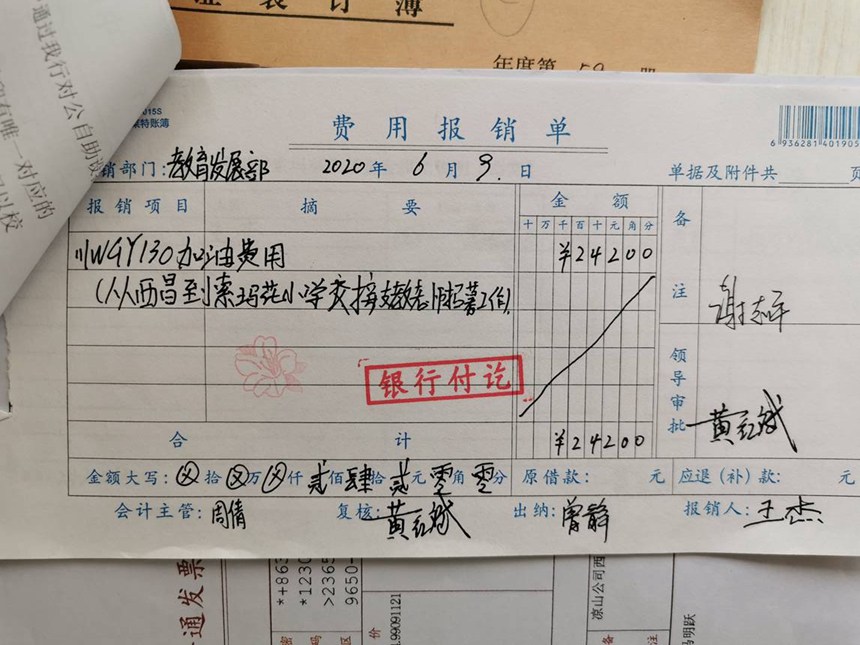 登 装 订 簿
年度第 59 册
通过我行对公自助
唯一对应的
015S
账簿
费用报销单
6 936281 401905
销部门：教育发展部 2020 年 6 月 9 日 单据及附件共 页
报销项目 摘要 金额 备注
十万千百十元角分
川WGY130加油费用 ¥24200
(从西昌到索玛花小学交接支教老师招募工作)
谢志平
银行付讫
领导审批 黄红斌
合计 ¥24200
金额大写：⊗拾⊗万⊗仟贰佰肆拾贰元零角零分 原借款： 元 应退（补）款： 元
会计主管：周倩 复核：黄红斌 出纳：曾静 报销人：王杰
通发票
*+863
*1230
>2365
9650-
价
.99091121
凉山公司西
备
注
马明跃